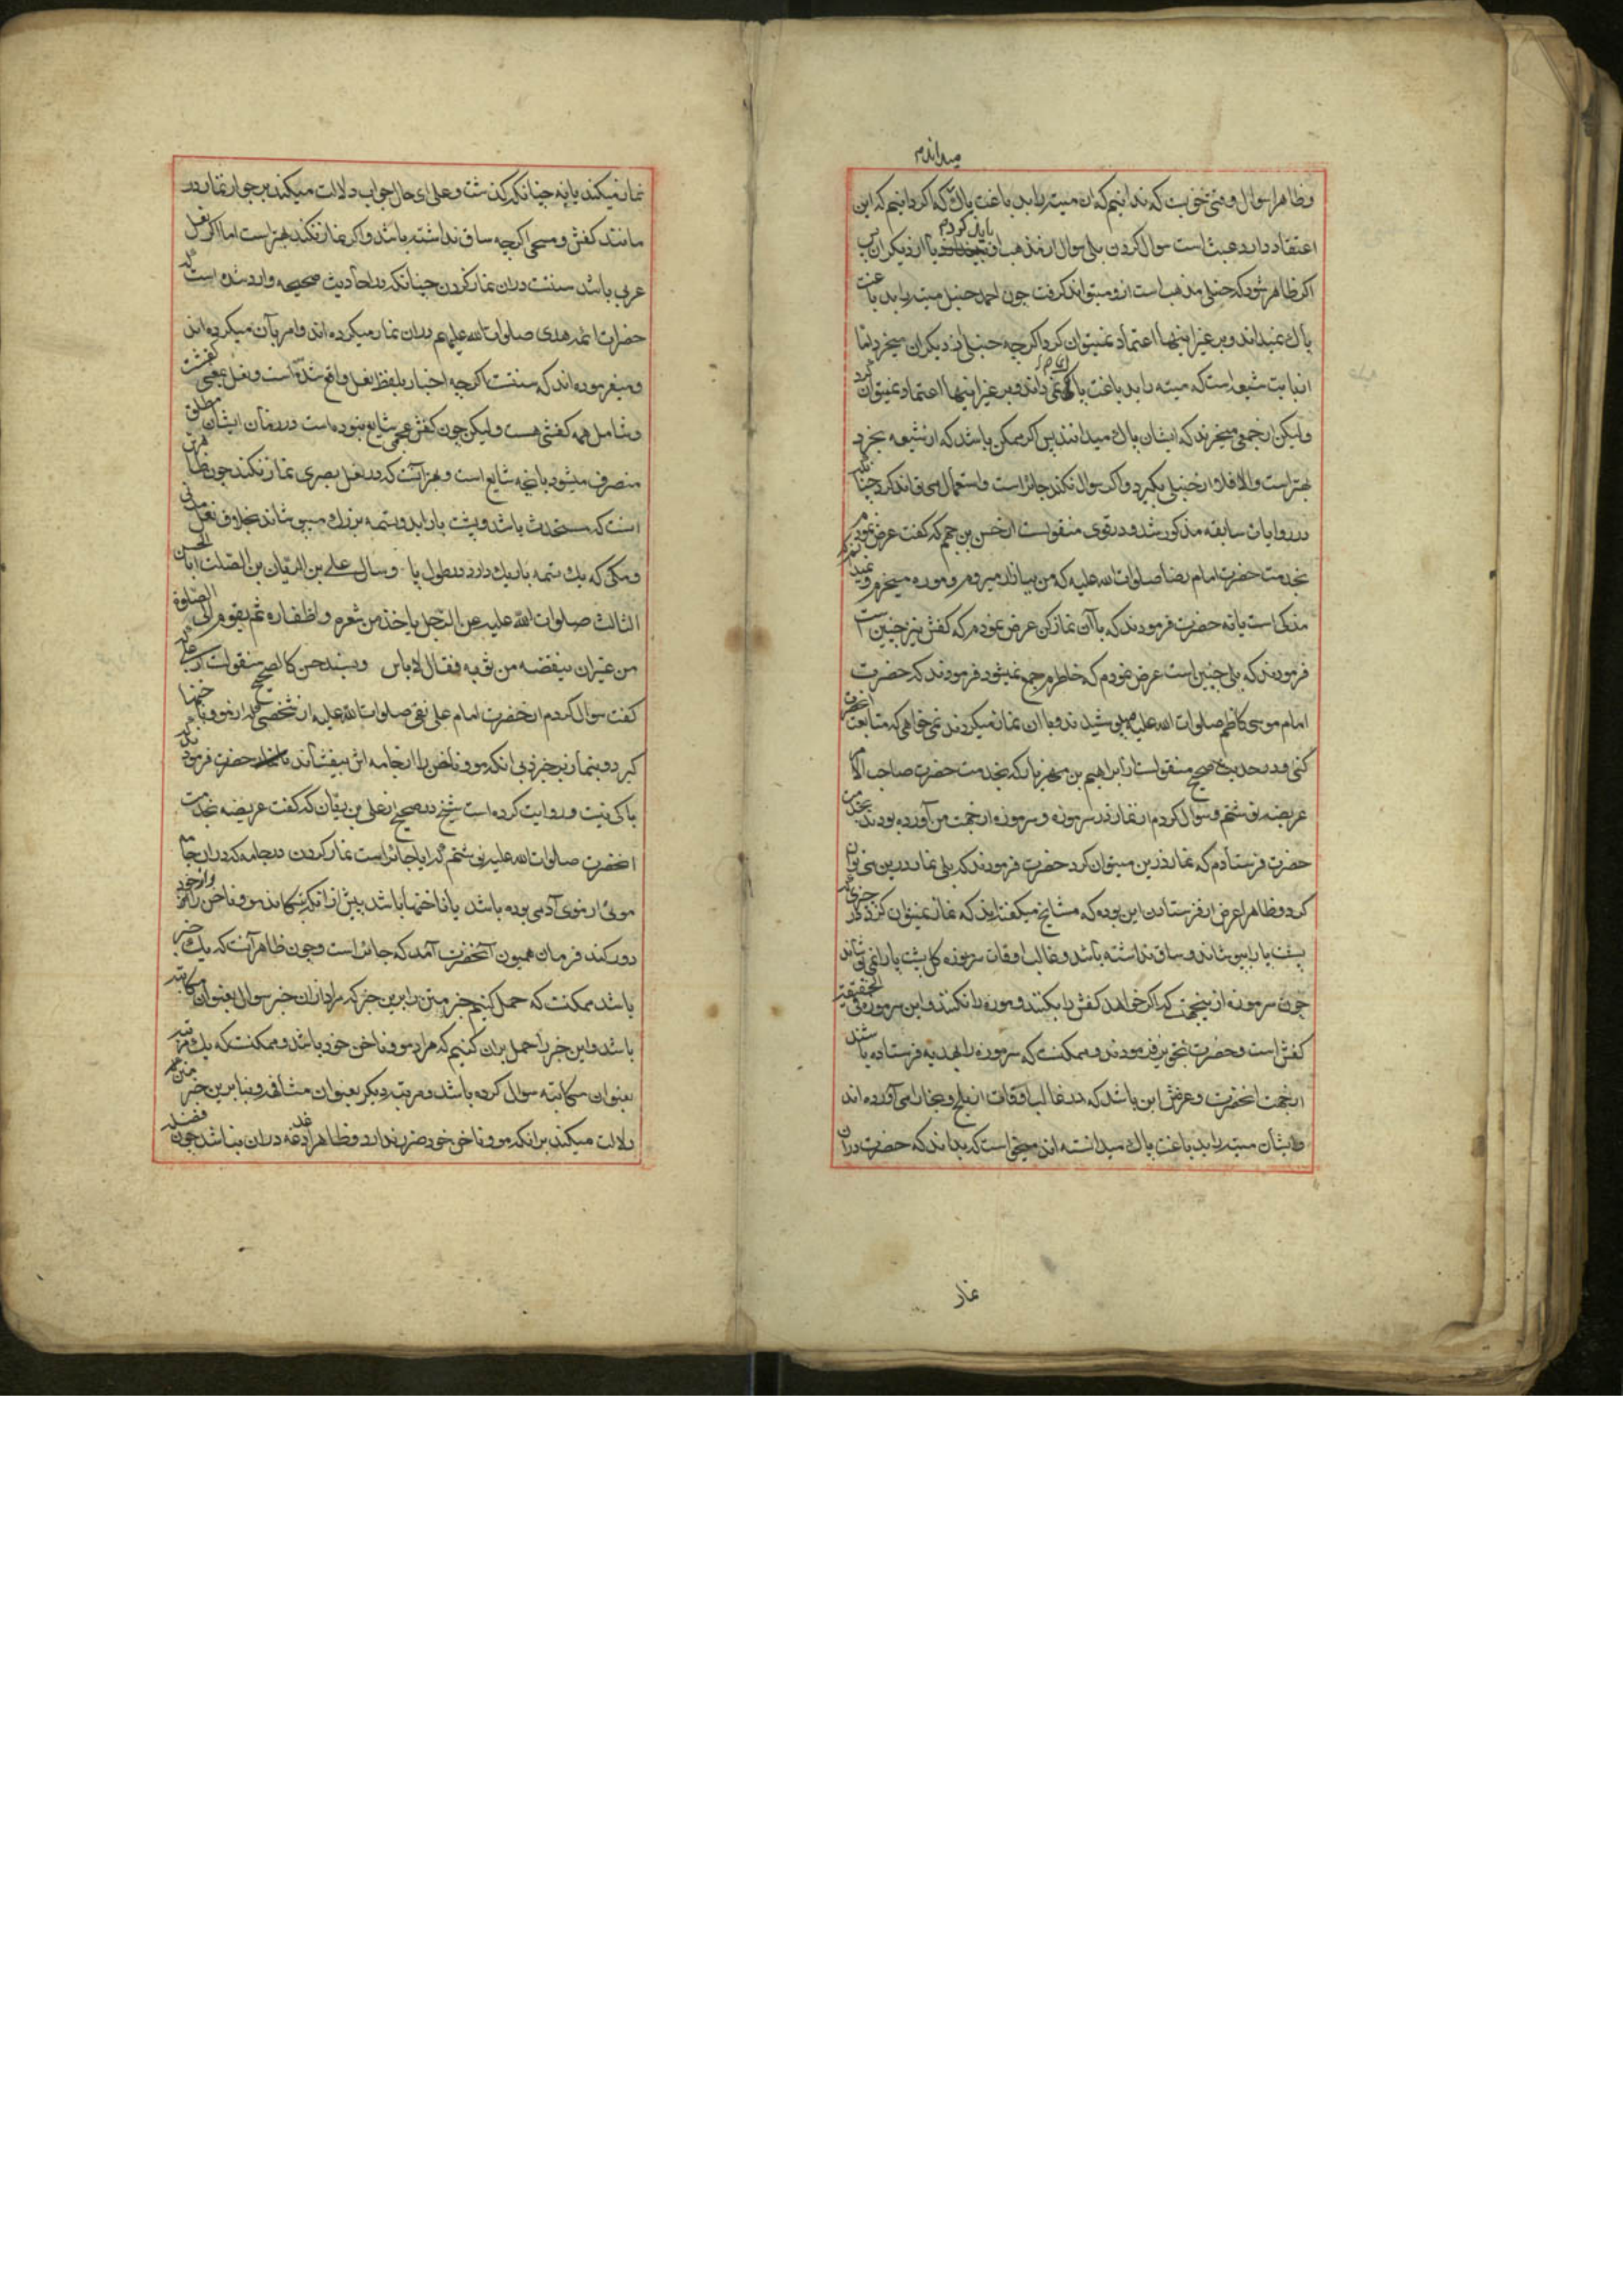 میدانم
و ظاهرا سوال وقتی خوبست که ندانیم که ان میته را بدباغت پاک که اگر دانیم که این
باید کردم
اعتقاد دارد عبث است سوال کردن بلی سوال از مذهب او یا از دیگران پس
اگر ظاهر شود که حنبلی مذهب است ازو میتواند گرفت چون احمد حنبل میته را بدباغت
پاک نمیداند و بر غیر اینها اعتماد نمیتوان کرد اگر چه حنبلی از دیگران میخرد اما
از بابت شیعه است که میته را بدباغت پاک نمی داند و بر غیر اینها اعتماد نمیتوان کرد
ولیکن از جمعی میخرند که ایشان پاک میدانند پس اگر ممکن باشد که از شیعه بخرد
بهتر است والا فلا و از حنبلی بگیرد و اگر سوال نکند جائز است و استعمال می تواند کرد چنانکه
در روایات سابقه مذکور شد و در قوی منقولست از حسن بن جهم که گفت عرض نمودم
بخدمت حضرت امام رضا صلوات الله علیه که من ببازار میروم و موزه میخرم و نمیدانم که
مذکی است یا نه حضرت فرمودند که با آن نماز کن عرض نمودم که کفش نیز چنین است
فرمودند که بلی چنین است عرض نمودم که خاطرم جمع نمیشود فرمودند که حضرت
امام موسی کاظم صلوات الله علیه می پوشیدند و با ان نماز میکردند نمی خواهی که متابعت آنحضرت
کنی و در حدیث صحیح منقولست از ابراهیم بن مهزیار که بخدمت حضرت صاحب الامر
عریضه نوشتم و سوال کردم از نماز در سرموزه و سرموزه از جهت من آورده بودند بخدمت
حضرت فرستادم که نماز درین میتوان کرد حضرت فرمودند که بلی نماز درین می توان
کرد و ظاهرا غرض از فرستادن این بوده که مشایخ میگفته اند که نماز نمیتوان کرد در چیزی که
پشت پا را بپوشاند و ساق نداشته باشد و غالب اوقات سرموزه کل پشت پا را نمی پوشاند
چون سرموزه از بهجهت که اگر خواهند کفش را بکنند و موزه را نکنند و این سرموزه فی الحقیقه
کفش است و حضرت تجویز فرمودند و ممکنست که سرموزه را بهدیه فرستاده باشند
از جهت انحضرت و غرضش این باشد که در غالب اوقات از بلخ و بخارا می آورده اند
و ایشان میته را بدباغت پاک میدانسته اند میخواسته است که بداند که حضرت در ان
نماز
نماز میکند یا نه چنانکه گذشت و علی ای حال جواب دلالت میکند بر جواز نماز در
مانند کفش و مسحی اگرچه ساق نداشته باشد و اگر نماز نکند بهتر است اما اگر نعل
عربی باشد سنتست در ان نماز کردن چنانکه در احادیث صحیحه وارد شده است که
حضرات ائمه هدی صلوات الله علیهم در ان نماز میکرده اند و امر بآن میکرده اند
و میفرموده اند که سنتست اگرچه اخبار بلفظ نعل واقع شده است و نعل بمعنی کفشست
و شامل همه کفشی هست ولیکن چون کفش عجمی شایع نبوده است در زمان ایشان مطلق
منصرف میشود بانچه شایع است و بهتر آنست که در نعل بصری نماز نکند چون ظاهرش
انست که مستحدث باشد و پشت پا را بدو تسمه بزرگ میپوشاند بخلاف نعل مدنی
و مکی که یک تسمه باریک دارد در طول پا وسال علی بن الریان بن الصلت ابا الحسن
الثالث صلوات الله علیه عن الرجل یاخذ من شعره و اظفاره ثم یقوم الی الصلوة
من غیر ان ینفضه من ثوبه فقال لا باس و بسند حسن کالصحیح منقولست از علی که
گفت سوال کردم از حضرت امام علی نقی صلوات الله علیه از شخصی که از مو و ناخنها
گیرد و بنماز برخیزد بی انکه مو و ناخن را از جامه اش بیفشاند حضرت فرمودند که
باکی نیست و روایت کرده است شیخ در صحیح از علی بن ریان که گفت عریضه بخدمت
انحضرت صلوات الله علیه نوشتم که ایا جائز است نماز کردن در جامه که در ان جامه
موئی از موی آدمی بوده باشد یا ناخنها باشد پیش از انکه بتکاند مو و ناخن را و از خود
دور کند فرمان همیون آنحضرت آمد که جائز است و چون ظاهر آنست که یک خبر
باشد ممکنست که حمل کنیم خبر متن را برین خبر که مراد از ان خبر سوال بعنوان مکاتبه
باشد و این خبر را حمل بر ان کنیم که مراد مو و ناخن خود باشد و ممکنست که یک مرتبه
بعنوان مکاتبه سوال کرده باشد و مرتبه دیگر بعنوان مشافهه و بنابرین خبر متن هم
دلالت میکند بر انکه مو و ناخن خود ضرر ندارد و ظاهرا دغدغه در ان نباشد چون فضله